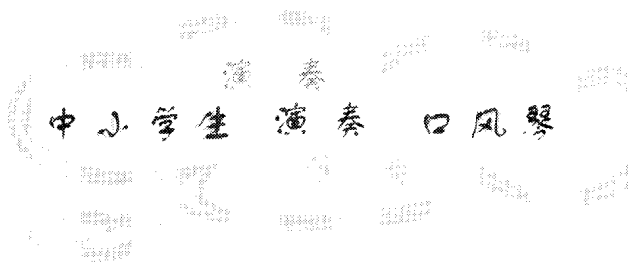 演 奏
中小学生 演奏 口风琴